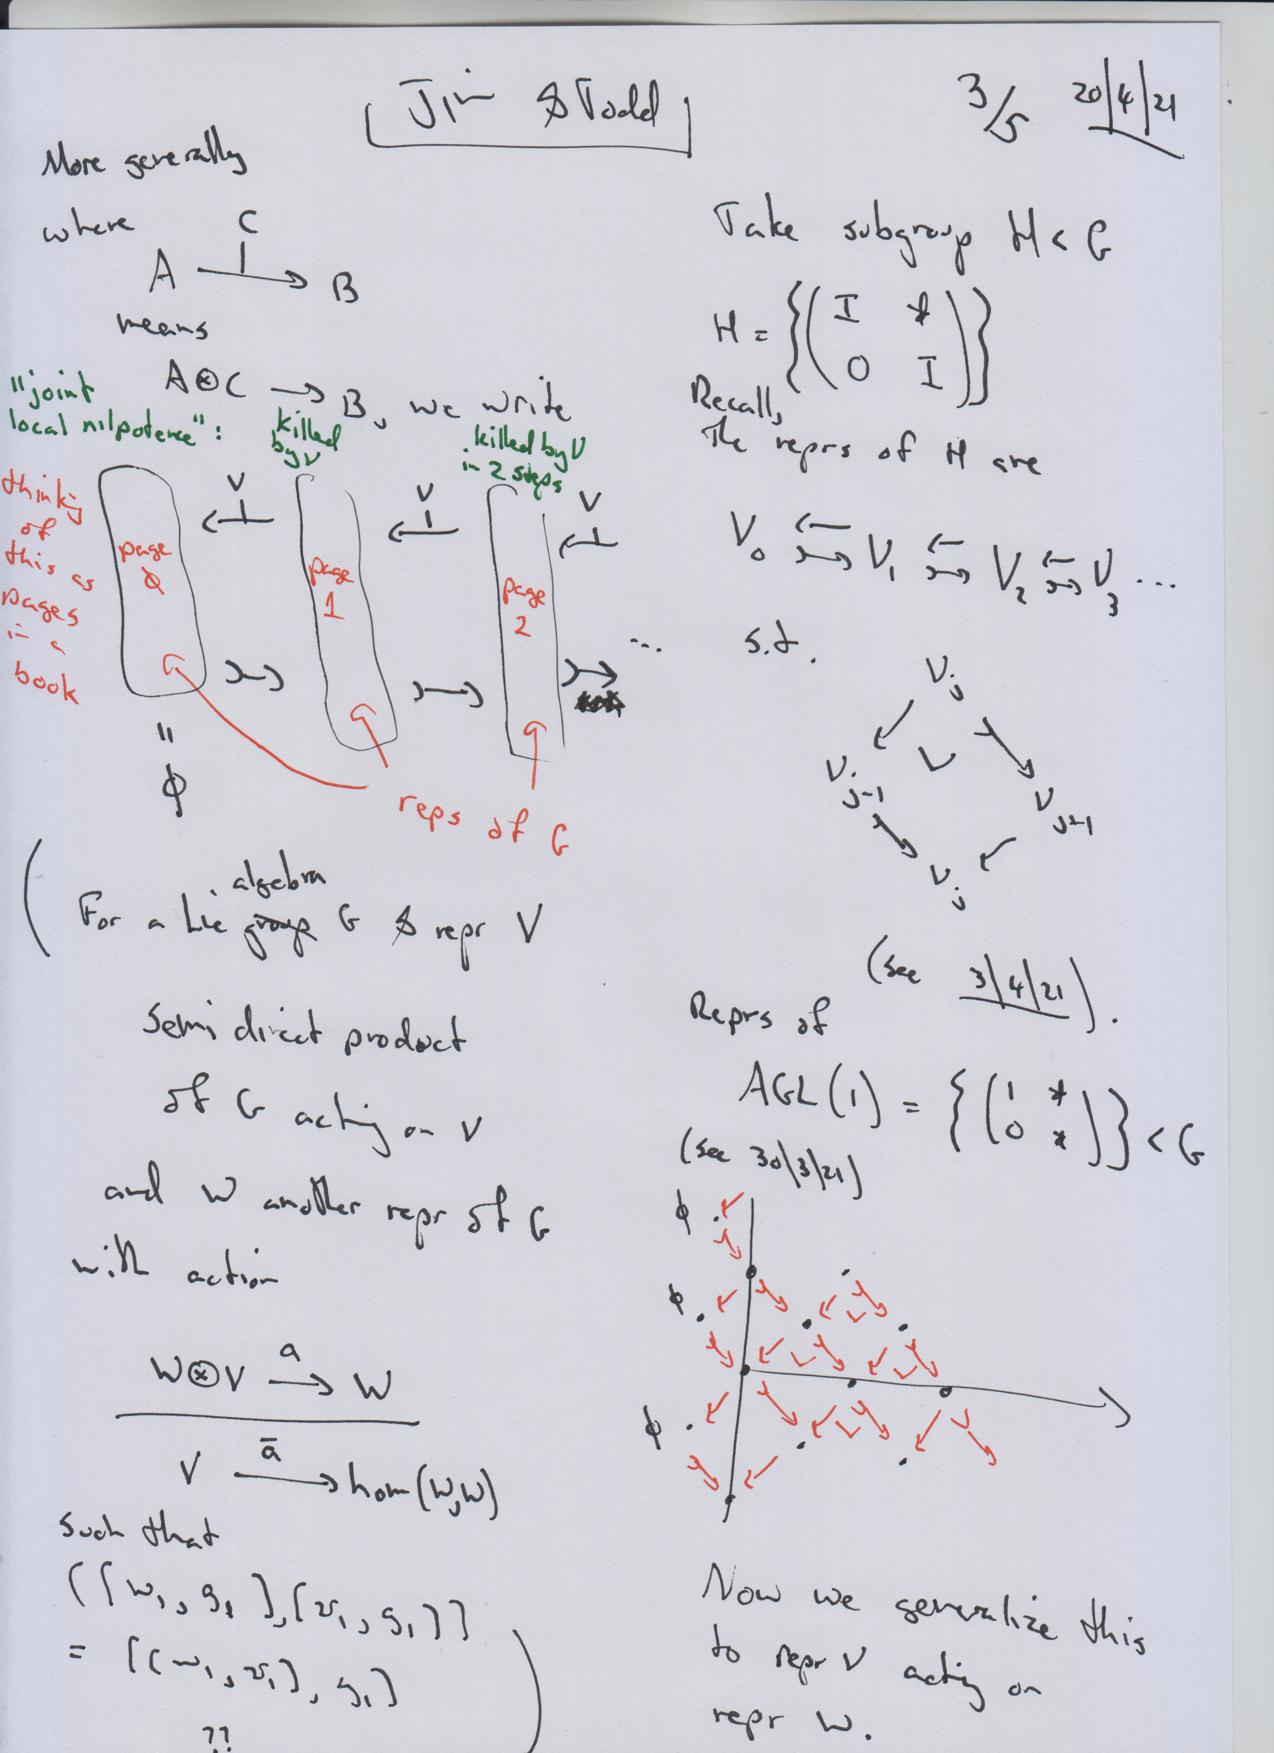 Jim & Todd
3/5 20/4/21
More generally
where
C
A → B
means
A⊗C → B, we write
"joint
local nilpotence":
killed
by V
killed by V
in 2 steps
thinking
of
this as
pages
in a
book
V V V
page
φ
page
1
page
2
...
"
φ
reps of G
(For a Lie group algebra G & repr V
semi direct product
of G acting on V
and W another repr of G
with action
W⊗V →a W
V →ā hom(W,W)
such that
([w₁, g₁], [v₁, g₁]]
= [[w₁, v₁], g₁]
??
)
Take subgroup H < G
H = {(I * 
0 I)}
Recall,
the reprs of H are
V₀ ⇆ V₁ ⇆ V₂ ⇆ V₃ ...
s.t.
Vⱼ
Vⱼ₋₁
Vⱼ₊₁
Vⱼ
(see 3/4/21).
Reprs of
AGL(1) = {(1 *
0 *)} < G
(see 30/3/21)
φ
φ
φ
Now we generalize this
to repr V acting on
repr W.